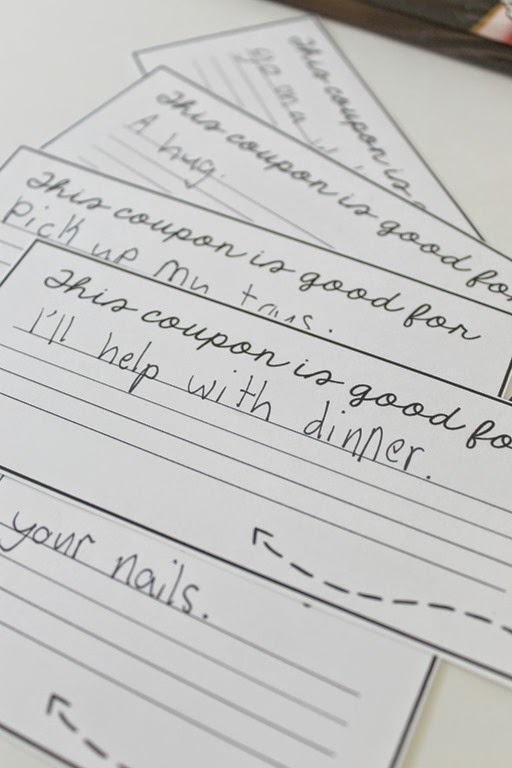 This coupon is
This coupon is good for
A hug.
This coupon is good for
Pick up my
This coupon is good fo
I'll help with dinner.
your nails.